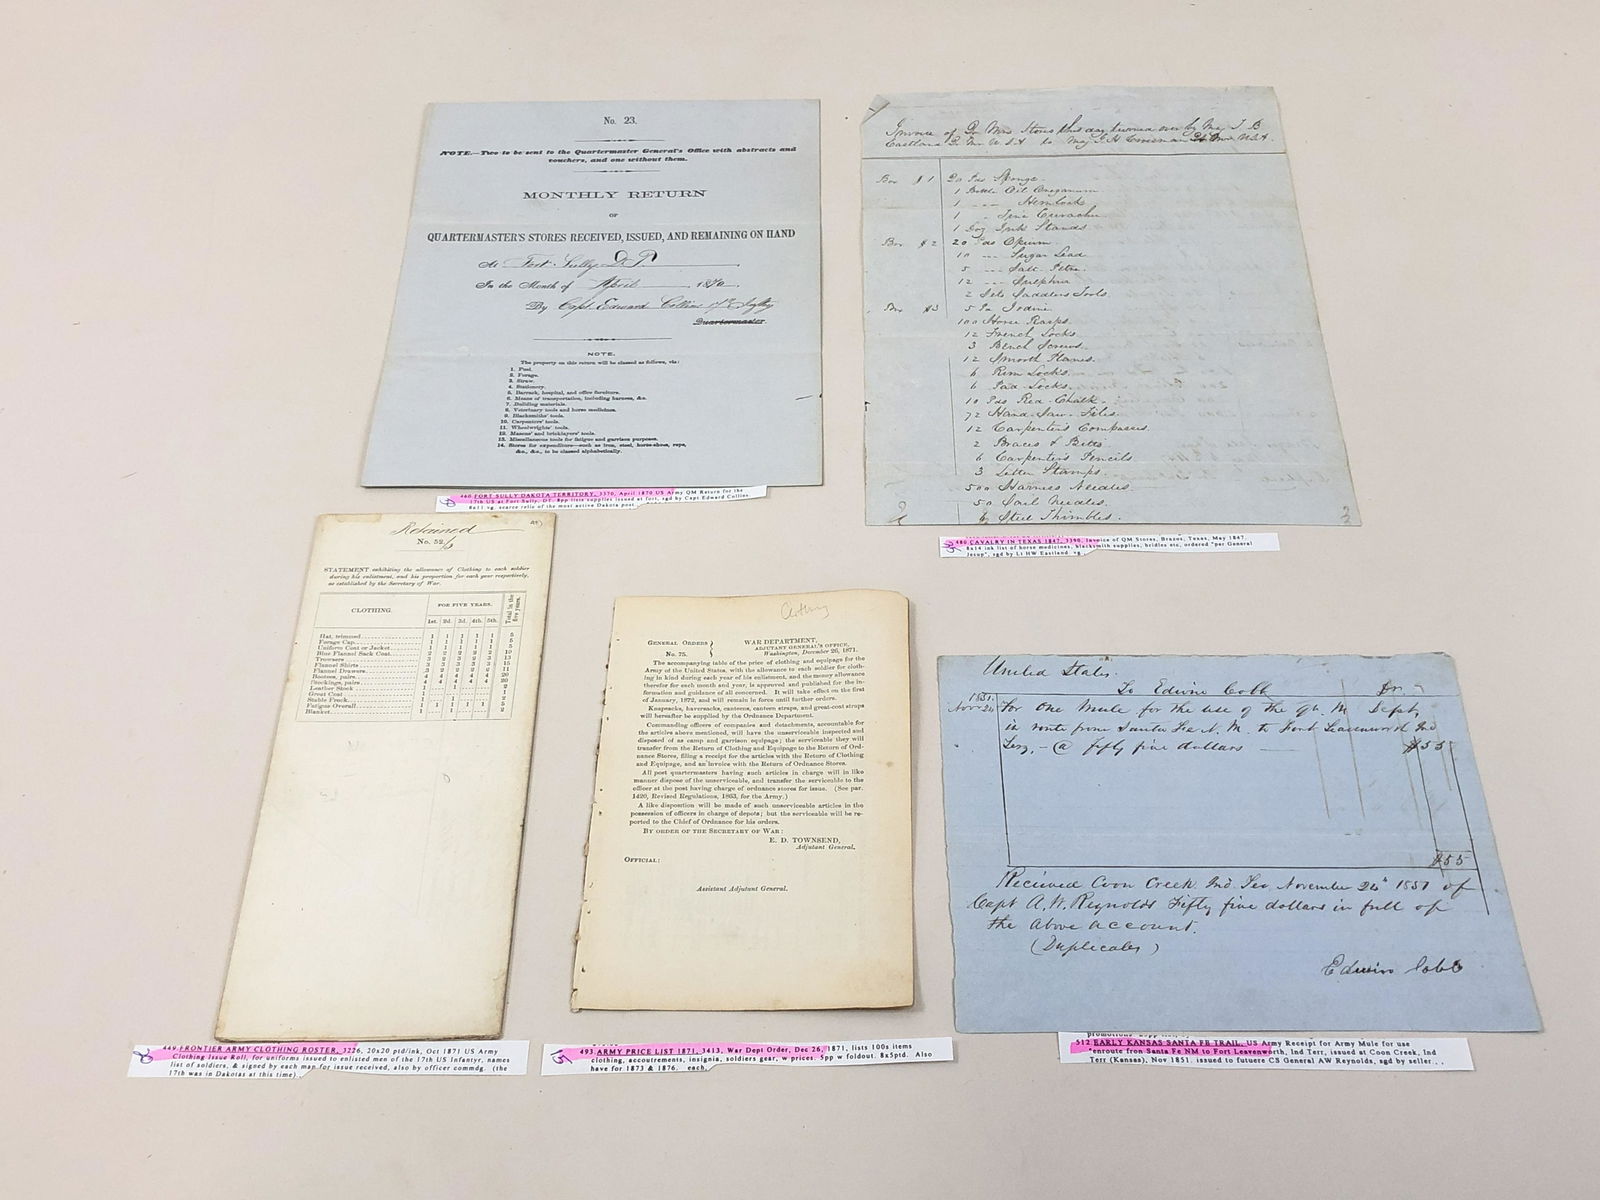 No. 23.
NOTE.—Two to be sent to the Quartermaster General's Office with abstracts and
vouchers, and one without them.
MONTHLY RETURN
OF
QUARTERMASTER'S STORES RECEIVED, ISSUED, AND REMAINING ON HAND
At Fort Sully D. T.
In the Month of April 1870.
By Capt Edward Collins 17th Infty
Quartermaster.
NOTE.
The property on this return will be classed as follows, viz:
1. Fuel.
2. Forage.
3. Straw.
4. Stationery.
5. Barrack, hospital, and office furniture.
6. Means of transportation, including harness, &c.
7. Building materials.
8. Veterinary tools and horse medicines.
9. Blacksmiths' tools.
10. Carpenters' tools.
11. Wheelwrights' tools.
12. Masons' and bricklayers' tools.
13. Miscellaneous tools for fatigue and garrison purposes.
14. Stores for expenditure—such as iron, steel, horse-shoes, rope,
&c., &c., to be classed alphabetically.
460 FORT SULLY DAKOTA TERRITORY, 3370, April 1870 US Army QM Return for the
17th US at Fort Sully, DT. 8pp lists supplies issued at fort, sgd by Capt Edward Collins
8x11 vg. scarce relic of the most active Dakota post
Invoice of Qr Mrs Stores this day turned over by Maj T. B.
Eastland Qr Mr U S A to Maj
Box # 1 20 Pds Sponge
1 Bottle Oil Origanum
1 Hemlock
1
1 Doz Ink Stands
Box # 2 20 Pds Opium
10 Sugar Lead
5 Salt Petre
12 Sulphur
2 Sets Saddlers Tools
Box #3 5 Iodine
100 Horse Rasps
12 French Locks
3 Bench Screws
12 Smooth Planes
6 Rim Locks
6 Pad Locks
10 Pds Red Chalk
72 Hand Saw Files
12 Carpenter's Compasses
2 Braces & Bitts
6 Carpenter's Pencils
3 Letter Stamps
500 Harness Needles
50 Sail Needles
6 Steel Thimbles
480 CAVALRY IN TEXAS 1847, 3390, Invoice of QM Stores, Brazos, Texas, May 1847.
8x14 ink list of horse medicines, blacksmith supplies, bridles etc, ordered "per General
Jesup", sgd by Lt HW Eastland vg
Retained
No. 52
STATEMENT exhibiting the allowance of Clothing to each soldier
during his enlistment, and his proportion for each year respectively,
as established by the Secretary of War.
CLOTHING. FOR FIVE YEARS. Total in the five years.
1st. 2d. 3d. 4th. 5th.
Hat, trimmed 1 1 1 1 1 5
Forage Cap 1 1 1 1 1 5
Uniform Coat or Jacket 1 1 1 1 1 5
Blue Flannel Sack Coat 2 2 2 2 2 10
Trowsers 3 2 3 2 3 13
Flannel Shirts 3 3 3 3 3 15
Flannel Drawers 3 2 2 2 2 11
Bootees, pairs 4 4 4 4 4 20
Stockings, pairs 4 4 4 4 4 20
Leather Stock 1 1 2
Great Coat 1 1
Stable Frock 1 1 2
Fatigue Overall 1 1 1 1 1 5
Blanket 1 1 2
449 FRONTIER ARMY CLOTHING ROSTER, 3226, 20x20 ptd/ink, Oct 1871 US Army
Clothing Issue Roll, for uniforms issued to enlisted men of the 17th US Infantyr, names
list of soldiers, & signed by each man for issue received, also by officer commdg. (the
17th was in Dakotas at this time).
Clothing
GENERAL ORDERS
No. 75.
WAR DEPARTMENT,
ADJUTANT GENERAL'S OFFICE,
Washington, December 26, 1871.
The accompanying table of the price of clothing and equipage for the
Army of the United States, with the allowance to each soldier for cloth-
ing in kind during each year of his enlistment, and the money allowance
therefor for each month and year, is approved and published for the in-
formation and guidance of all concerned. It will take effect on the first
of January, 1872, and will remain in force until further orders.
Knapsacks, haversacks, canteens, canteen straps, and great-coat straps
will hereafter be supplied by the Ordnance Department.
Commanding officers of companies and detachments, accountable for
the articles above mentioned, will have the unserviceable inspected and
disposed of as camp and garrison equipage; the serviceable they will
transfer from the Return of Clothing and Equipage to the Return of Ord-
nance Stores, filing a receipt for the articles with the Return of Clothing
and Equipage, and an invoice with the Return of Ordnance Stores.
All post quartermasters having such articles in charge will in like
manner dispose of the unserviceable, and transfer the serviceable to the
officer at the post having charge of ordnance stores for issue. (See par.
1420, Revised Regulations, 1863, for the Army.)
A like disposition will be made of such unserviceable articles in the
possession of officers in charge of depots; but the serviceable will be re-
ported to the Chief of Ordnance for his orders.
BY ORDER OF THE SECRETARY OF WAR:
E. D. TOWNSEND,
Adjutant General.
OFFICIAL:
Assistant Adjutant General.
493 ARMY PRICE LIST 1871, 3413, War Dept Order, Dec 26, 1871, lists 100s items
clothing, accoutrements, insignia, soldiers gear, w prices. 5pp w foldout. 8x5ptd. Also
have for 1873 & 1876. each.
United States.
To Edwin Cobb Dr.
1851.
Nov 24 For One Mule for the use of the Qr. M Dept,
in route from Santa Fee N. M. to Fort Leavenworth Ind
Tery, - @ fifty five dollars $55
$55
Received Coon Creek Ind. Ter, November 24th 1851 of
Capt A. W. Reynolds Fifty five dollars in full of
the above account.
(Duplicates)
Edwin Cobb
512 EARLY KANSAS SANTA FE TRAIL, US Army Receipt for Army Mule for use
"enroute fron Santa Fe NM to Fort Leavenworth, Ind Terr, issued at Coon Creek, Ind
Terr (Kansas), Nov 1851. issued to futuere CS General AW Reynolds, sgd by seller..